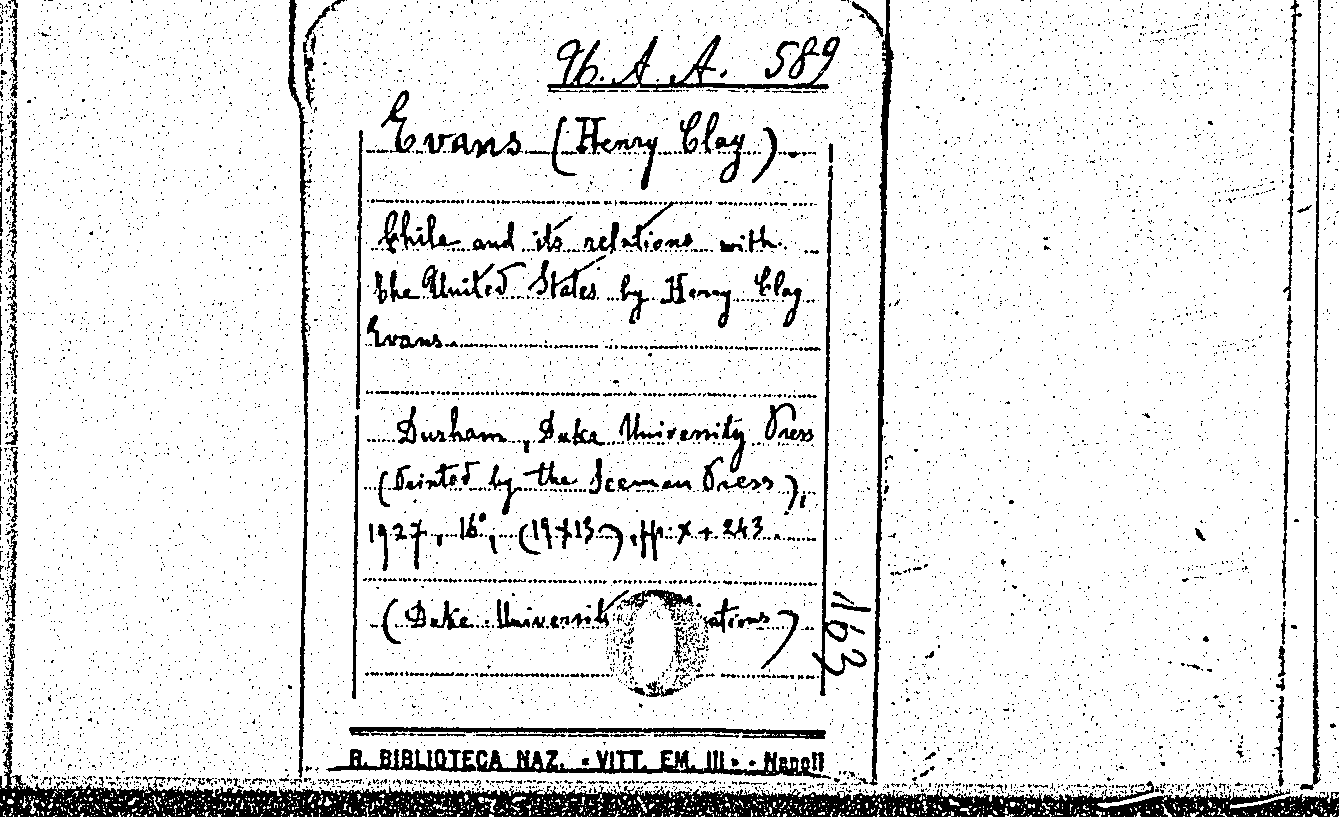 96. A. A. 589
Evans (Henry Clay).
Chile and its relations with
the United States by Henry Clay
Evans.
Durham, Duke University Press
(Printed by the Seeman Press),
1927, 16°, (19x13), pp. X + 243.
(Duke Universit ations)
1163
R. BIBLIOTECA NAZ. "VITT. EM. III" - Napoli